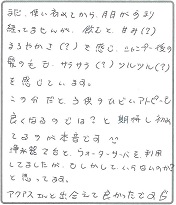 まだ、使い初めてから、月日があまり
経ってませんが、飲むと、甘み(?)
まろやかさ(?)を感じ、シャンプー後の
髪の毛も、サラサラ(?)ツルツル(?)
を感じています。
この分だと、子供のひどいアトピーも
良くなるのでは?と期待し初め
てるのが本音です
浄水器であと、ウォーターサーバを利用
してましたが、もしかして、いらないのかな?
と思ってます。
アクアスとの出会えて良かったです